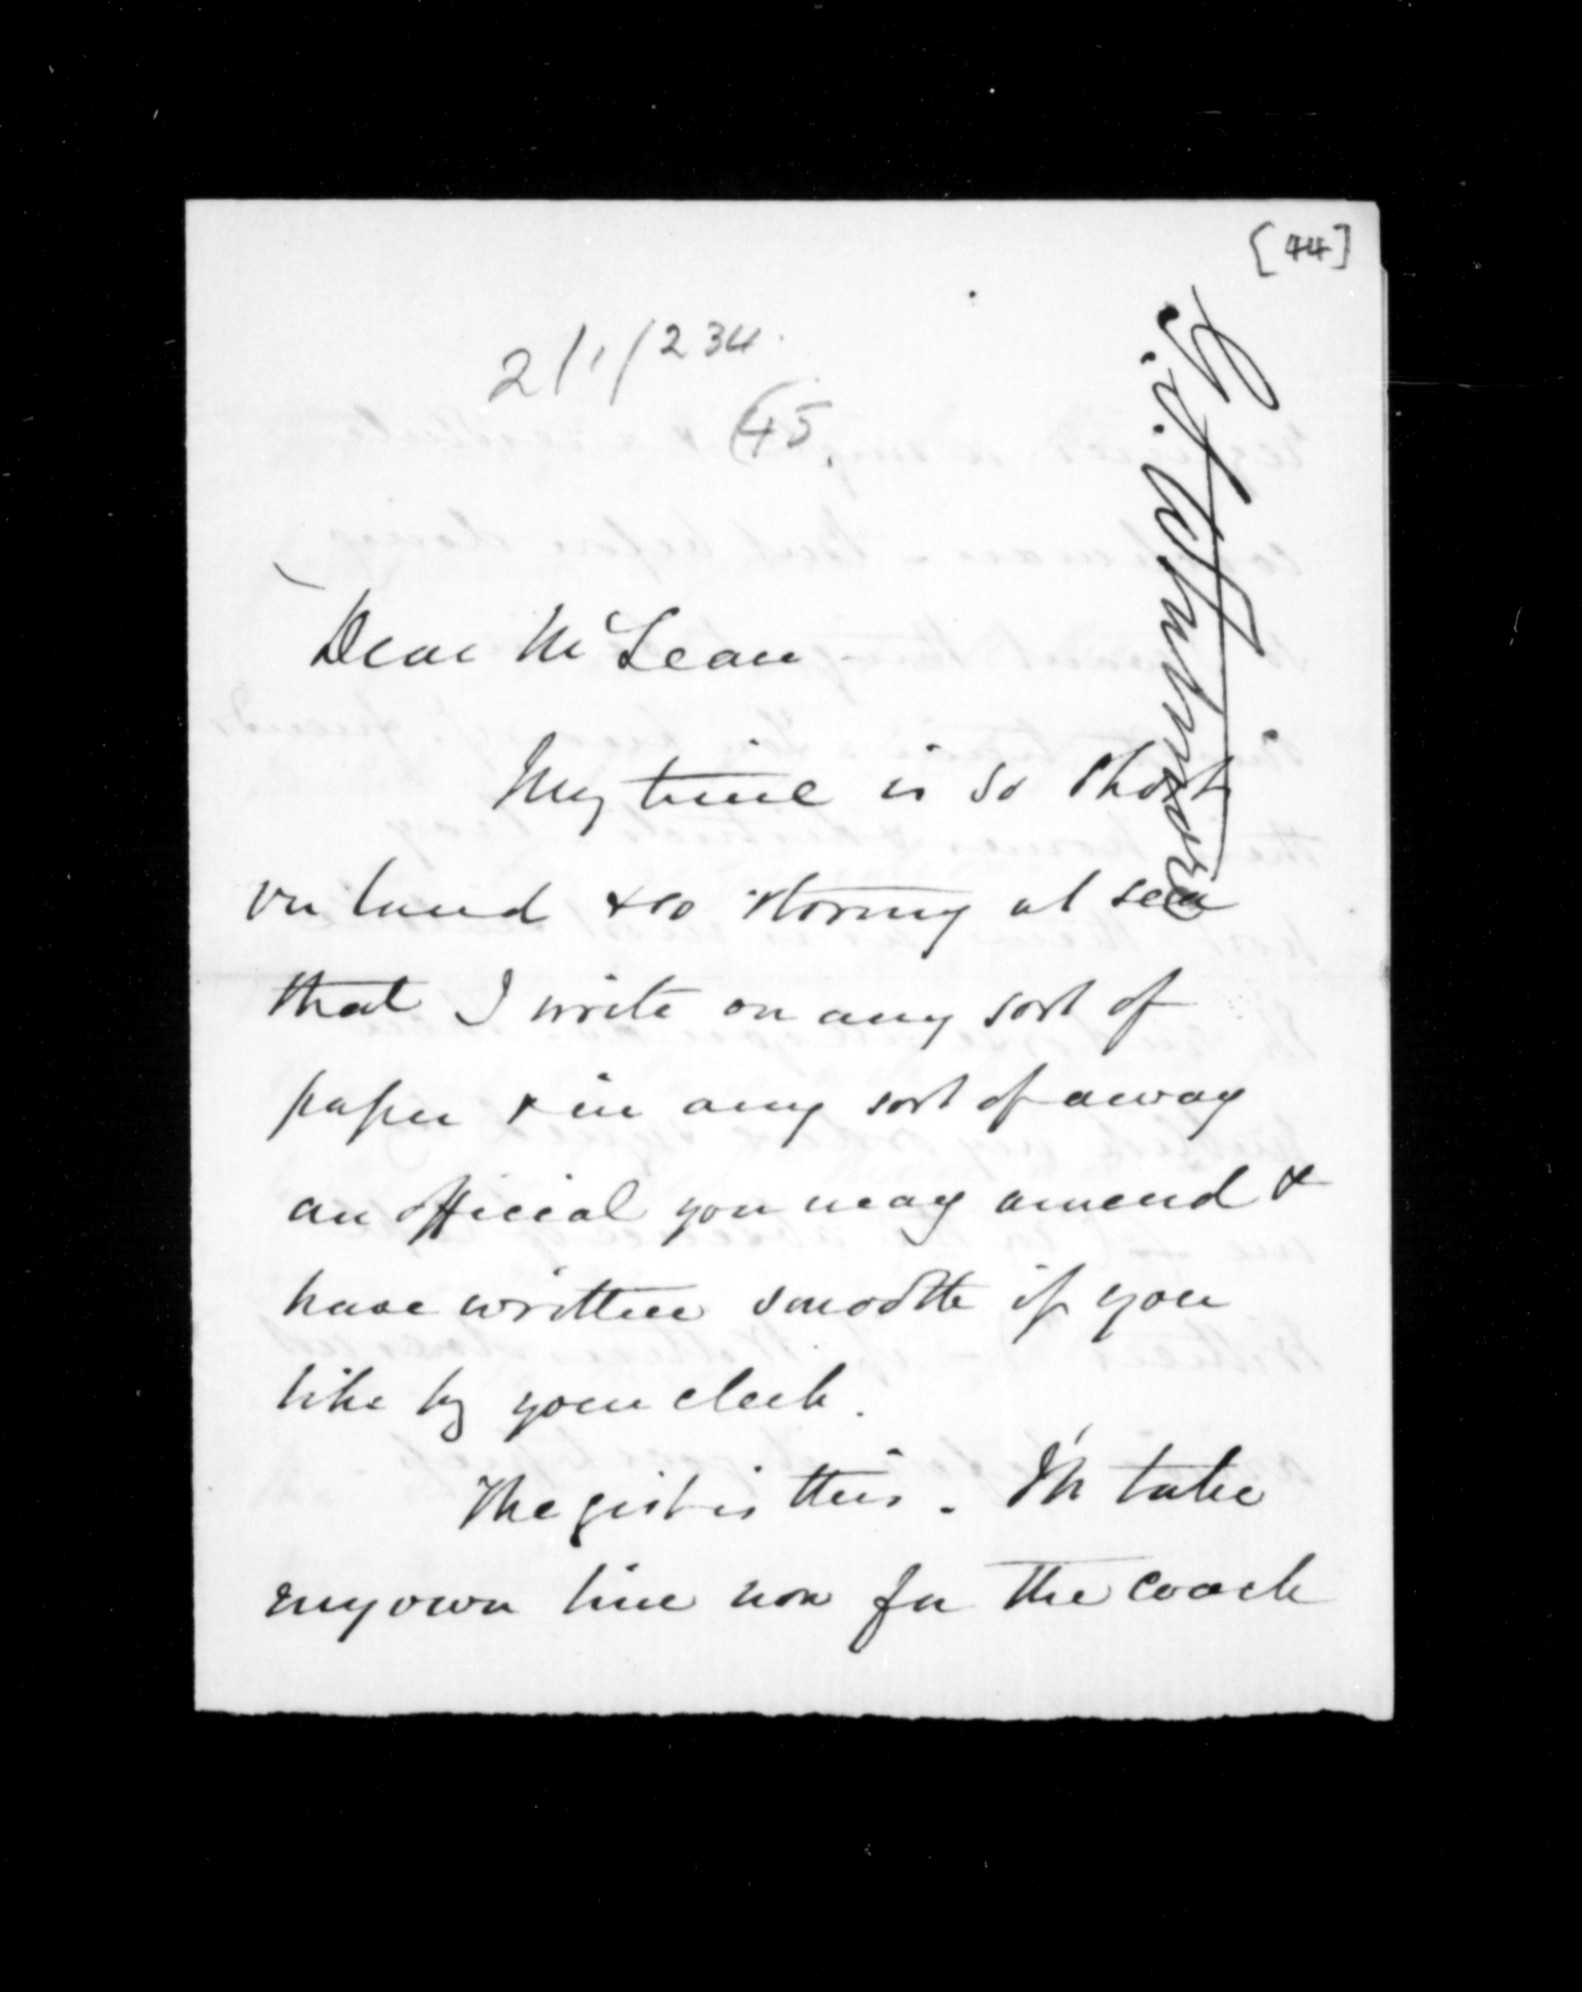 [44]
2/1/234.
(45.
G. S. Whitmore
Dear McLean
My time is so short
on land & so stormy at sea
that I write on any sort of
paper & in any sort of a way
an official you may amend &
have written smooth if you
like by your clerk.
The gist is this. I'll take
my own line now for the coach